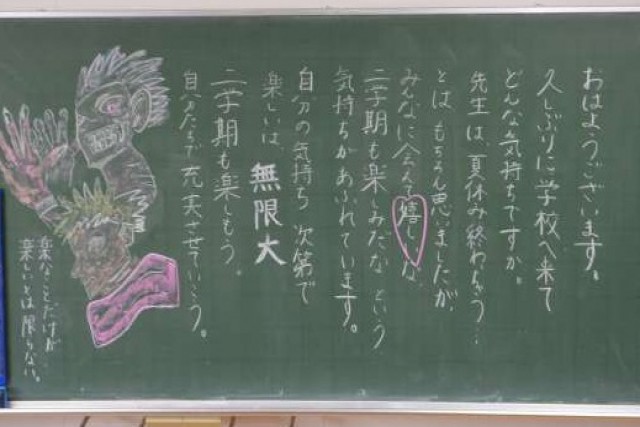 おはようございます。
久しぶりに学校へ来て
どんな気持ちですか。
先生は、夏休み終わっちゃう…
とは もちろん思いましたが、
みんなに会えて嬉しいな、
二学期も楽しみだな という
気持ちがあふれています。
自分の気持ち 次第で
楽しいは、無限大
二学期も楽しもう。
自分たちで 充実させていこう。
楽なことだけが
楽しいとは限らない。